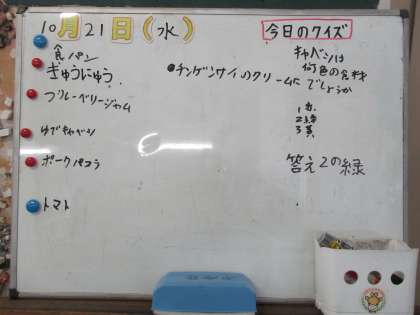 10月21日(水)
今日のクイズ
食パン
ぎゅうにゅう
ブルーベリージャム
ゆでキャベツ
ポークパコラ
トマト
●チンゲンサイのクリームに
キャベツは
何色の食料
でしょうか
1赤
2緑
3黄
答え2の緑